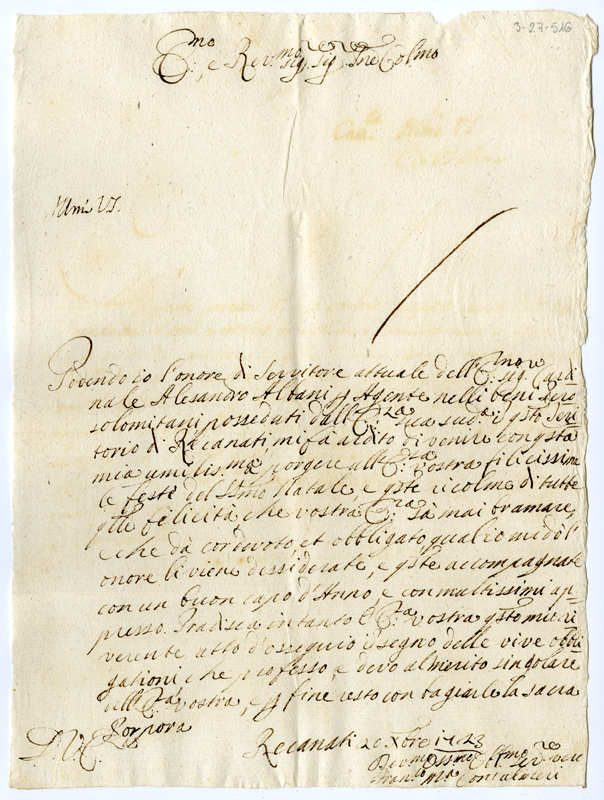 3-27-516
E:mo, e Rev:mo Sig: Sig: Pne Col:mo
Godendo io l'onore di Servitore attuale dell'E:mo Sig: Cardi
nale Alesandro Albani p Agente nelli beni Iero
solomitani posseduti dall'E:za Sua sud:a i qsto Teri
torio di Recanati, mi fà ardito di venire con qsta
mia umilis:ma porgere all'E:za Vostra filicissime
le feste del Ssmo Natale, e qste ricolme di tutte
qlle felicità che Vostra E:za sà mai bramare,
e che dà cor devoto, et obbligato qual io mi dò l'
onore li viene dessiderate, e qste accompagnate
con un buon capo d'Anno, e con moltissimi ap
presso. Gradisca intanto E:za Vostra qsto mio ri
verente atto d'ossequio i segno delle vive obbli
gationi che professo, e devo al merito singolare
dell'E:za Vostra, e p fine resto con bagiarle la sacra
Porpora
D. V. E.
Recanati 20 Xbre 1723
Devmo Ossmo Obl:mo Ser:re vero
Fran:co M:a